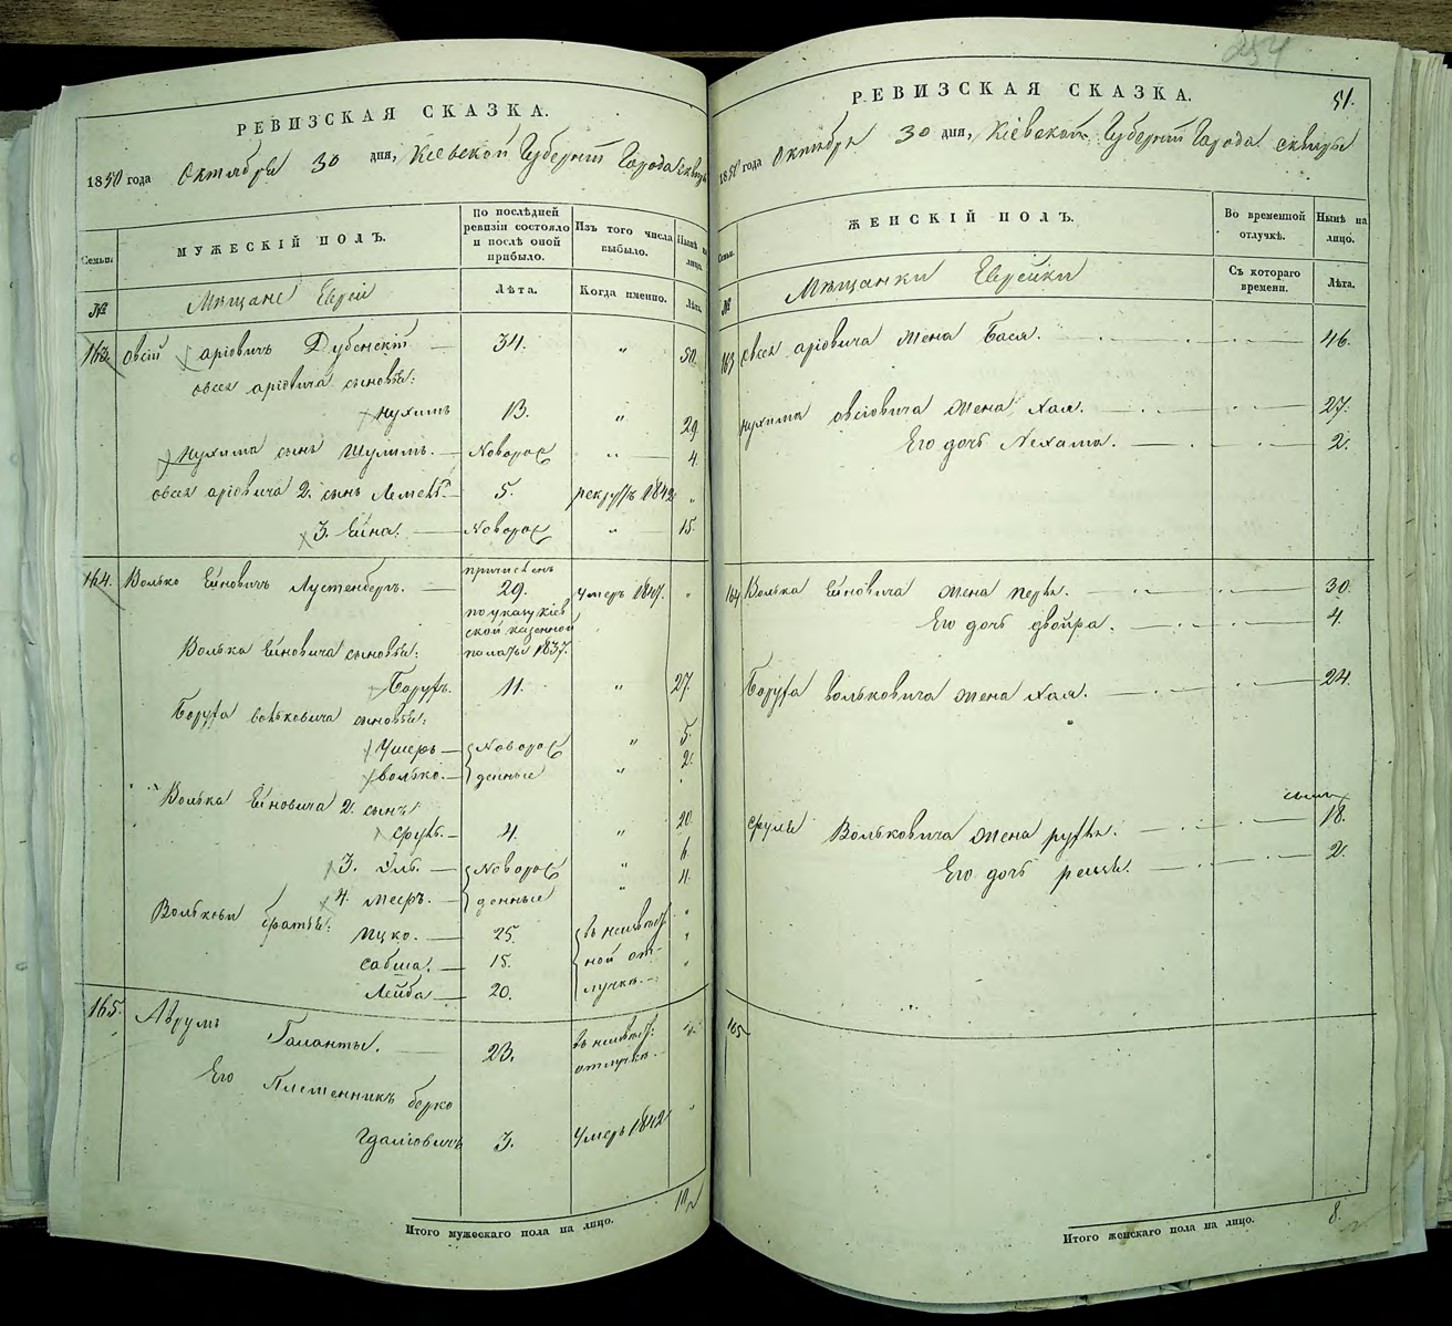 254
РЕВИЗСКАЯ СКАЗКА.
1850 года Октября 30 дня, Кіевской Губерніи Города Сквиры
Семьи.
МУЖЕСКІЙ ПОЛЪ.
По послѣдней ревизіи состояло и послѣ оной прибыло.
Изъ того числа выбыло.
Нынѣ на лицо.
№
Мѣщане Евреи
Лѣта.
Когда именно.
Лѣта.
163. Овсій Аріовичъ Дубенскій 34. " 50.
Овсея Аріовича сыновья:
Нухимъ 13. " 29.
Нухима сынъ Шулимъ. Новорож " 4.
Овсея Аріовича 2. сынъ 5. рекрутъ 1842 "
3. Ейна. Новорож " 15.
164. Волько Ейновичъ Лустенбергъ. причисленъ 29. по указу Кіев Умеръ 1847. "
ской казенной
Волька Ейновича сыновья: палаты 1837.
Борухъ. 11. " 27.
Боруха Вольковича сыновья:
Умеръ Новорож " 5.
Волько. денные " 2.
Волька Ейновича 2. сынъ
Сруль. 4. " 20.
3. Эль. Новорож " 6.
4. Мееръ. денные " 11.
Вольковы братья:
Ицко. 25. въ неизвѣст "
Сабша. 15. ной от- "
Лейба 20. лучкѣ. "
165. Аврумъ
Галанты. 23. въ неизвѣст: отлучкѣ. "
Его Племенникъ Берко
Гдаліовичъ 3. Умеръ 1842 "
Итого мужескаго пола на лицо. 10
РЕВИЗСКАЯ СКАЗКА. 51.
1850 года Октября 30 дня, Кіевской Губерніи Города Сквиры
Семьи.
ЖЕНСКІЙ ПОЛЪ.
Во временной отлучкѣ.
Нынѣ на лицо.
№
Мѣщанки Еврейки
Съ котораго времени.
Лѣта.
163 Овсея Аріовича жена Бася. 46.
Нухима Овсіовича жена Хая. 27.
Его дочь Нехама. 2.
164 Волька Ейновича жена Перля. 30.
Его дочь Двойра. 4.
Боруха Вольковича жена Хая. 24.
Сруля Вольковича жена Рухля. 18.
Его дочь 2.
165
Итого женскаго пола на лицо. 8.